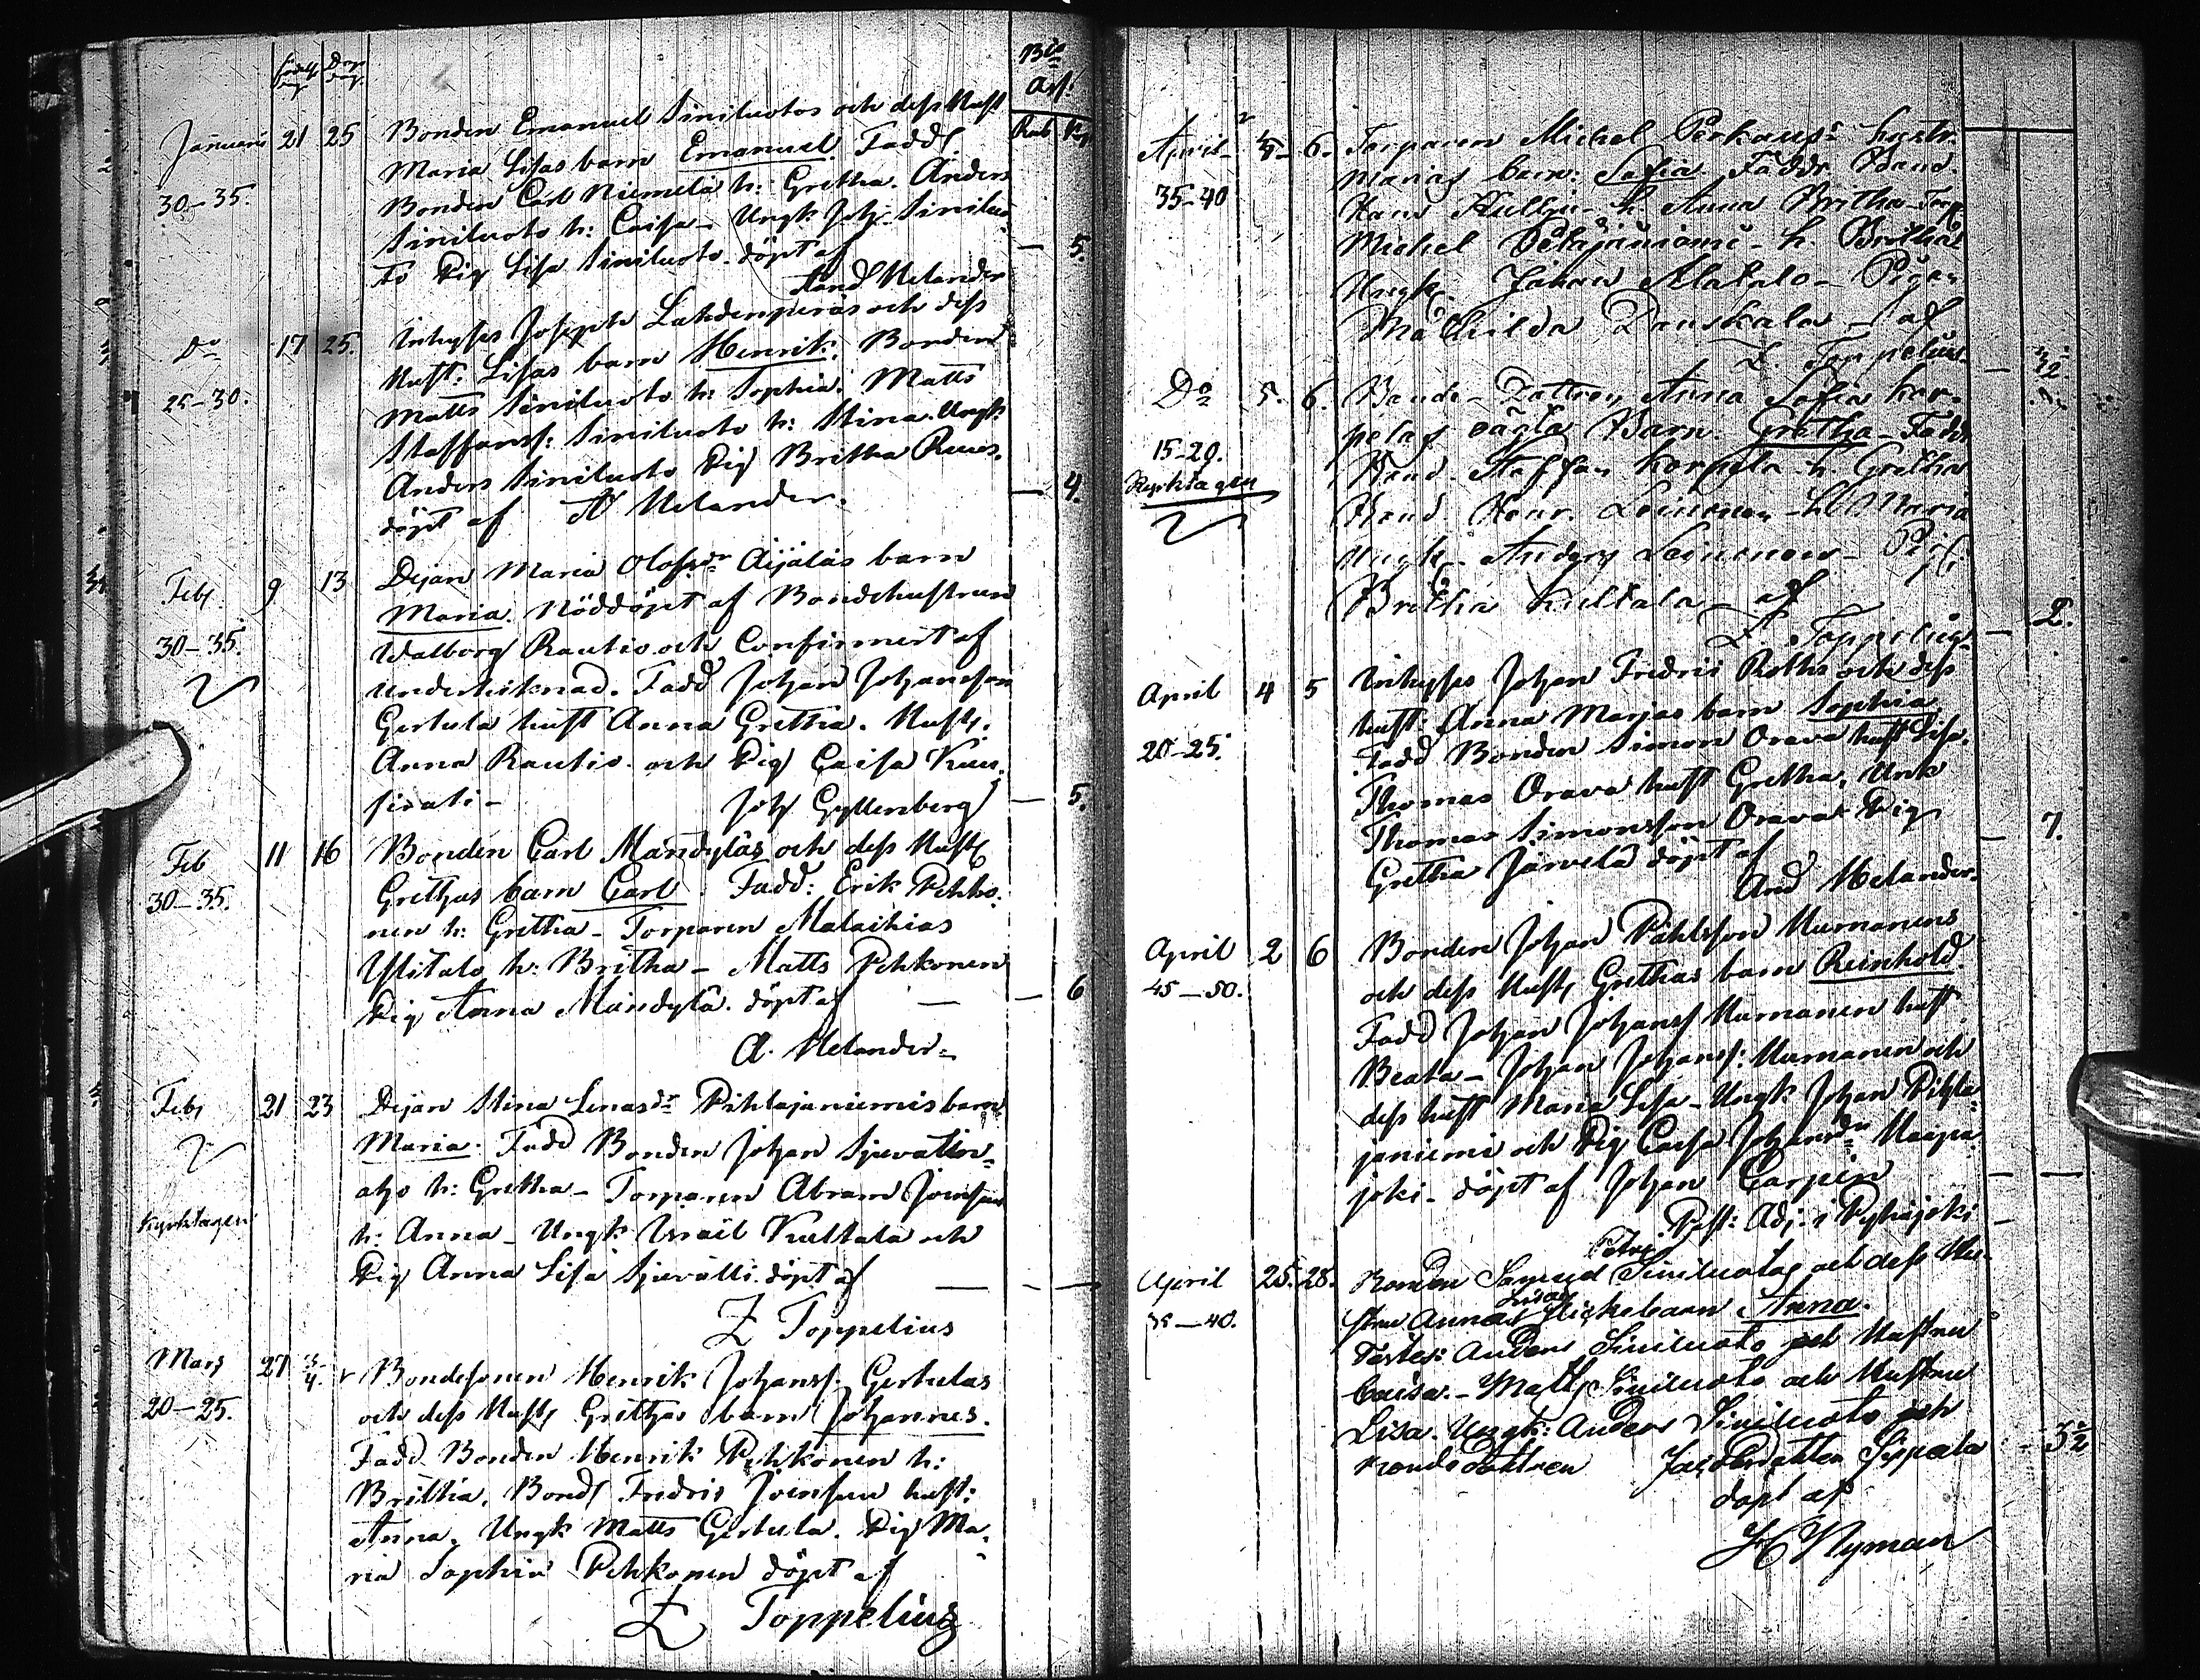 Bia
Arf.
Rub Kp
Januari 21 25 Bonden Emanuel Siniluotos och dess Hust
Maria Lisas barn Emanuel. Fadd.
30–35. Bonden Carl Niemelä h: Gretha. Anders
Siniluoto h: Caisa – Ungk Joh. Siniluo-
to Pig Lisa Siniluoto. döpt af — 5.
And Helander
Do 17 25. Inhyses Joseph Lahdenperäs och dess
Hust: Lisas barn Henrik. Bonden
25–30. Matts Siniluoto h: Sophia. Matts
Staffanss: Siniluoto h: Stina. Ungk:
Anders Siniluoto Pig Britha Ruus.
döpt af A Helander. — 4.
Feb 9 13 Pigan Maria Olofsdr Äijäläs barn
Maria. Nöddöpt af Bondehustrun
30–35. Walborg Rautio och Confirmert af
underteknad. Fadd Johan Johansson
Gertula hust Anna Gretha. Hust.
Anna Rautio och Pig Caisa Kuu-
sirati – Joh Gyllenberg — 5.
Feb 11 16 Bonden Carl Mändyläs och dess Hust
30–35. Grethas barn Carl. Fadd: Erik Pehko-
nen h: Gretha – Torparen Malachias
Ylitalo h: Britha – Matts Pehkonen
Pig Anna Mändylä. döpt af — — 6
A. Helander
Feb 21 23 Pigan Stina Lenasdr Pihlajaniemis barn
Maria. Fadd Bonden Johan Sjevatin-
aho h: Gretha – Torparen Abram Joensuu
Kyrktagen h: Anna – Ungk Israël Kultala och
Pig Anna Lisa Sjevälli. döpt af — — —
Z Toppelius
Mars 27 3/4. Bondesonen Henrik Johanss. Gertulas
20–25. och dess Hust Grethas barn Johannes.
Fadd Bonden Henrik Pehkonen h:
Britha. Bond Fredric Joensuu hust:
Anna. Ungk Matts Gertula. Pig Ma-
ria Sophia Pehkonen döpt af
Z Toppelius
April 6. Torparen Michel Perkaus: hustr.
Marias barn: Sofia Faddr Bond.
35–40 Hans h. Anna Britha – Torp
Michel Petäjäniemi – h. Britha
Ungk. Johan Alatalo – Pigan
Mathilda – af
Z. Toppelius
Do 5. 6. Bonde-Dottren Anna Sofia Kor-
pelas oägta Barn. Gretha – Fadd
15–20. Bond. Staffan Korpela – h. Gretha
Kyrktagen Bond. Henr. Leinonen – h. Maria
Ungk. Anders Leinonen – Pig.
Britha Kultala – af
Z. Toppelius — 2.
April 4 5 Inhyses Johan Fredric Roths och dess
hust: Anna Marias barn Sophia
20–25. Fadd Bonden Simon Orava hust Lisa.
Thomas Orava hust Gretha. Unk
Thomas Simonsson Orava Pig — 7.
Gretha Järvelä döpt af
And Helander.
April 2 6 Bonden Johan Påhlsson Hurnanens
45–50. och dess Hust Grethas barn Reinhold.
Fadd Johan Johanss Hurnanen hust
Beata – Johan Johanss: Hurnanen och
dess hust Maria Lisa – Ungk Johan Pihla-
janiemi och Pig Caisa Johansdr Haapa-
joki – döpt af Johan Carpén — —
Past: Adj. i Pyhäjoki —
April 25. 28. Bonden Samuel Petri Siniluotos och dess Hu-
35–40. stru Annas Lisas flickebarn Anna.
Testes: Anders Siniluoto och Hustru
Caisa. – Matts Siniluoto och Hustru
Lisa. Ungk: Anders Siniluoto och
Bonde dottren Sippala
döpt af
H Nyman